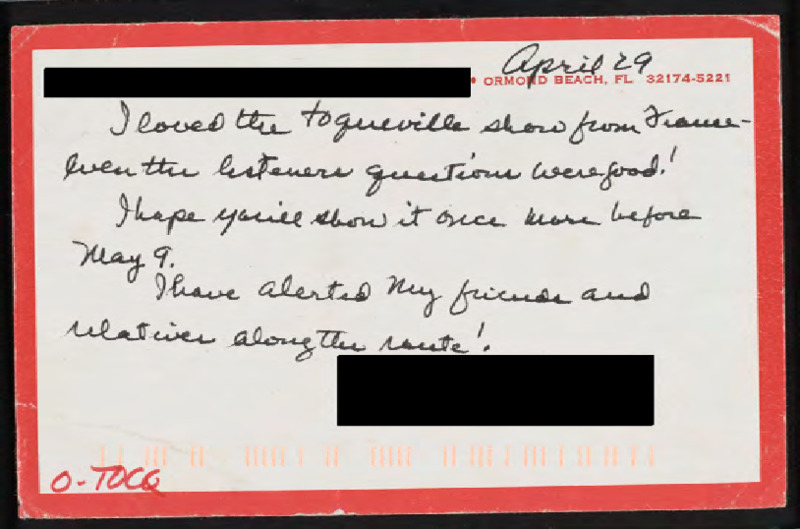 April 29
• ORMOND BEACH, FL 32174-5221
I loved the toqueville show from France -
Even the listeners questions were good!
I hope you'll show it once more before
May 9.
I have alerted my friends and
relatives along the route!
O-TOCQ